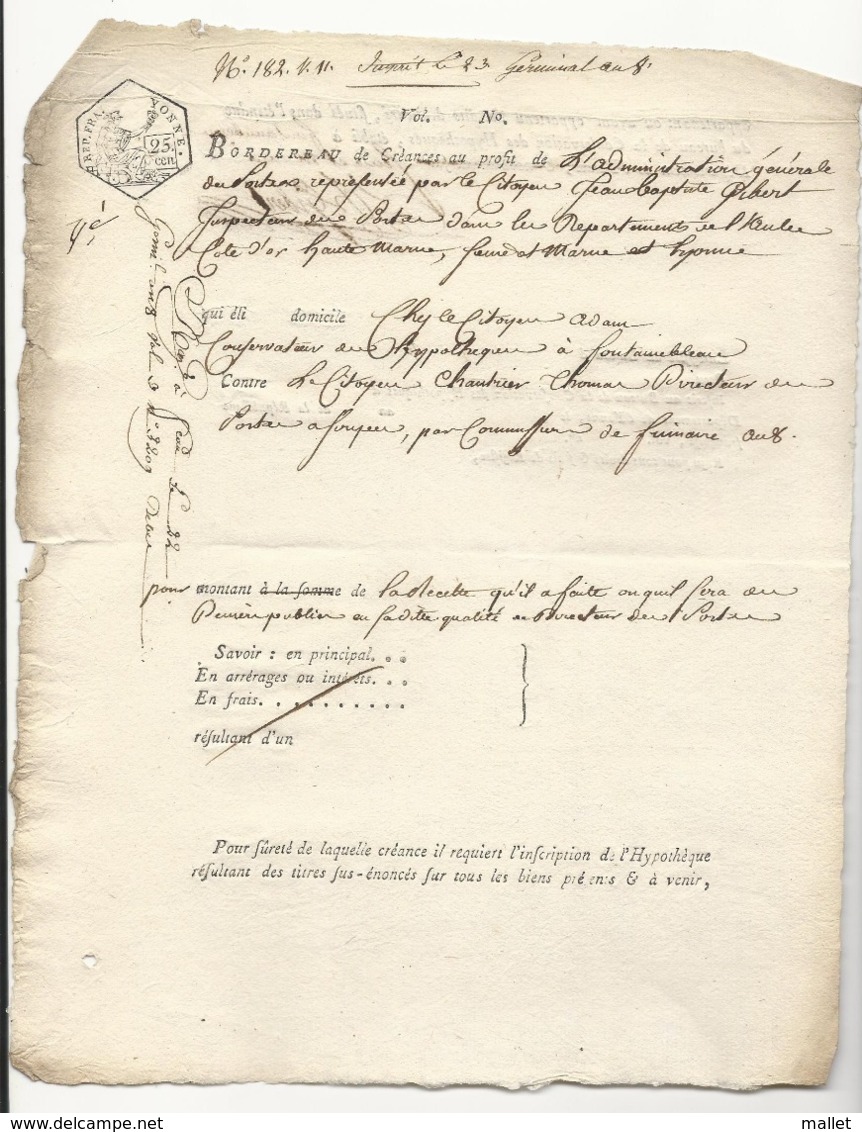 No. 182. V. 11. Inscrit le 23 Germinal an 8.
REP. FRA.
YONNE.
25. cen
Vol. No.
BORDEREAU de Créances au profit de L'administration générale
des Postes, représentée par le Citoyen Jean Baptiste Gibert
Inspecteur des Postes dans les Departements de l'Aube
Cote d'or haute Marne, seine et Marne et Lyonne
qui éli domicile Chez le Citoyen adam
Conservateur des hypotheques à fontainebleau
Contre Le Citoyen Chautrier Thomas Directeur des
Postes a , par Commission de frimaire an 8.
pour montant à la somme de la Recette qu'il a faite ou qu'il fera des
Deniers publics en sa ditte qualité de Directeur des Postes
Savoir : en principal. . .
En arrérages ou intérêts. . .
En frais. . . . . . . . . .
réſultant d'un
Pour ſûreté de laquelle créance il requiert l'inſcription de l'Hypothèque
réſultant des titres ſus-énoncés ſur tous les biens pré ens & à venir,
à le 22
Germ. an 8 Vol. 2 No. 3209